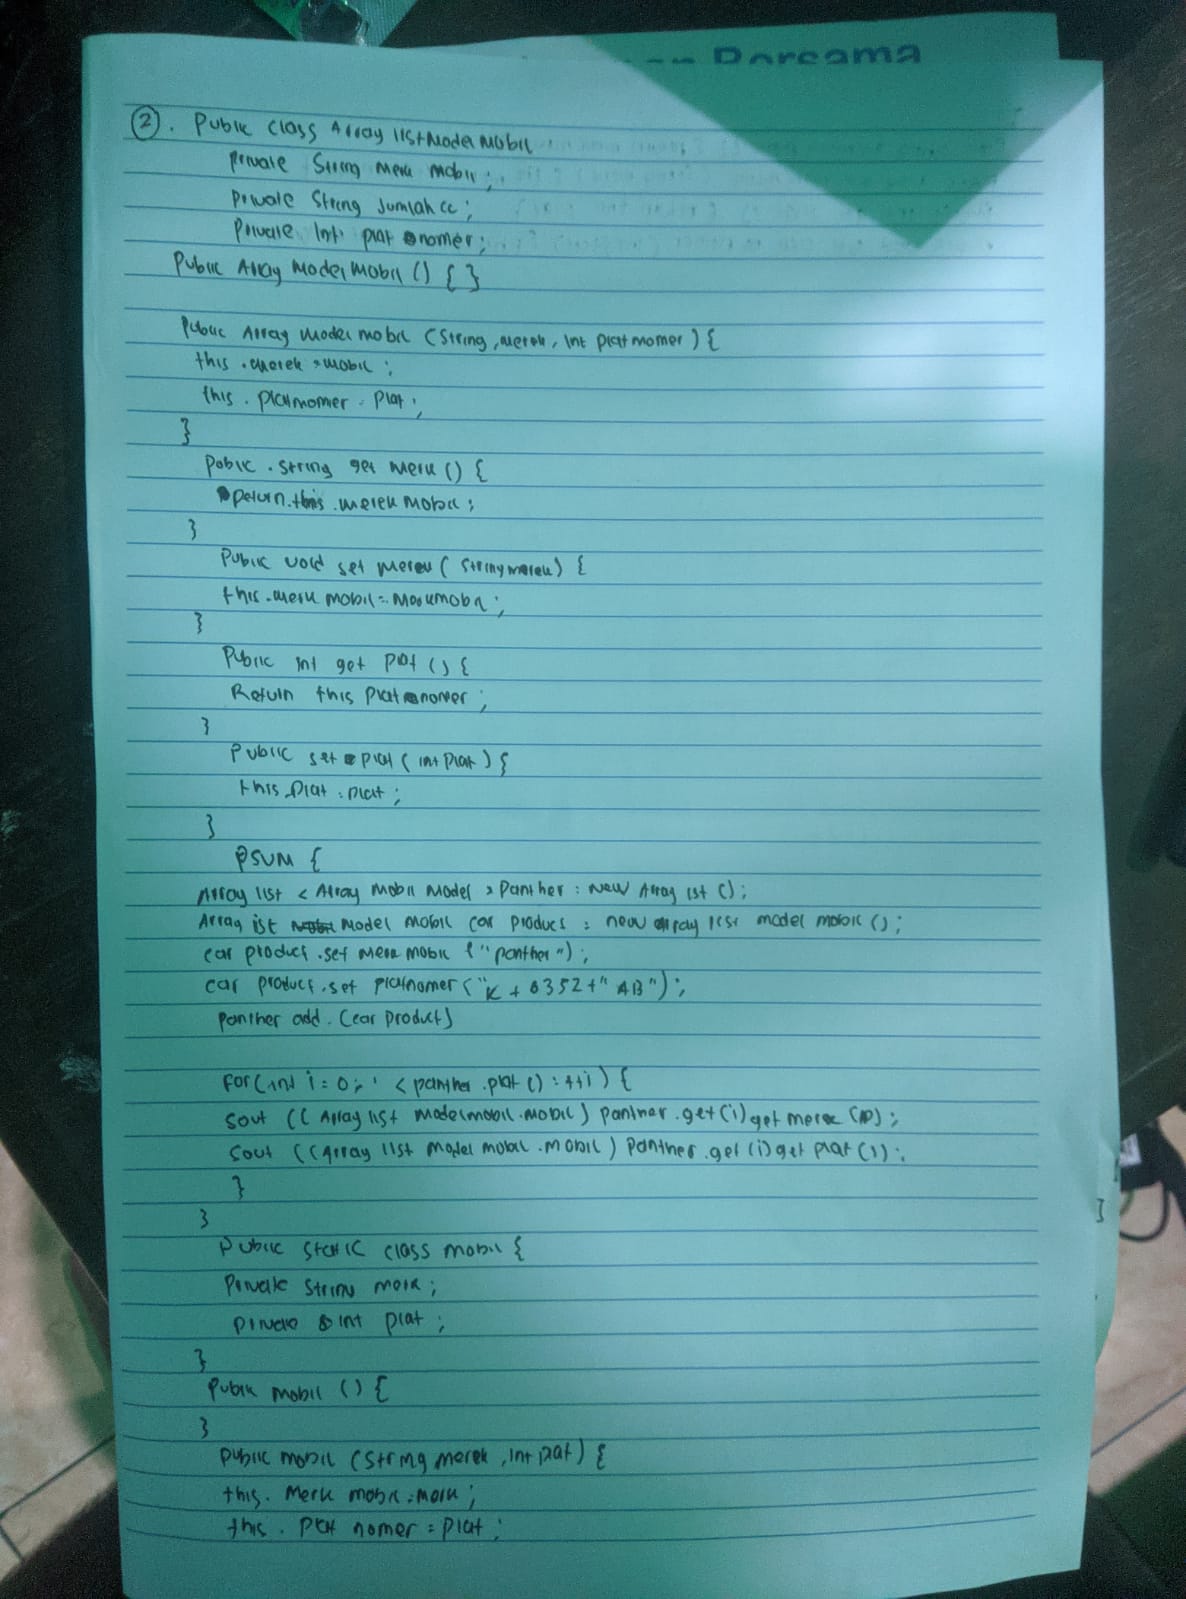 Bersama
2. Public class Array listModel Mobil
private String merk mobil;
private String Jumlah cc;
Private Int plat nomer;
Public Array Model Mobil () { }
Public Array Model mobil (String, merek, Int plat momer) {
this . merek = mobil ;
this . platmomer = plat ;
}
Public . String get Merk () {
return.this .merek Mobil ;
}
Public void set Merek ( String merek) {
this .merk mobil = Merkmobil ;
}
Public int get plat () {
Return this Plat nomer ;
}
Public set plat ( int Plat ) {
this Plat = plat ;
}
PSVM {
Array list < Array Mobil Model > Panther = New Array ist ();
Array ist Model mobil car product = new array list model mobil ();
car product .set Merk mobil ( " panther ") ;
car product.set platnomer ( "K + 8352 + " AB ") ;
Panther add . (car product)
For ( int i = 0 ; i < panther .plat () : ++i ) {
Sout (( Array list modelmobil .mobil ) Panther .get (i) get merek () ;
Sout ((Array list model mobil .mobil ) Panther .get (i) get plat () ;
}
}
Public static class mobil {
Private String merk ;
private int plat ;
}
Public mobil () {
}
public mobil (String merek , int plat) {
this. Merk mobil = merk ;
this . Plat nomer = Plat ;